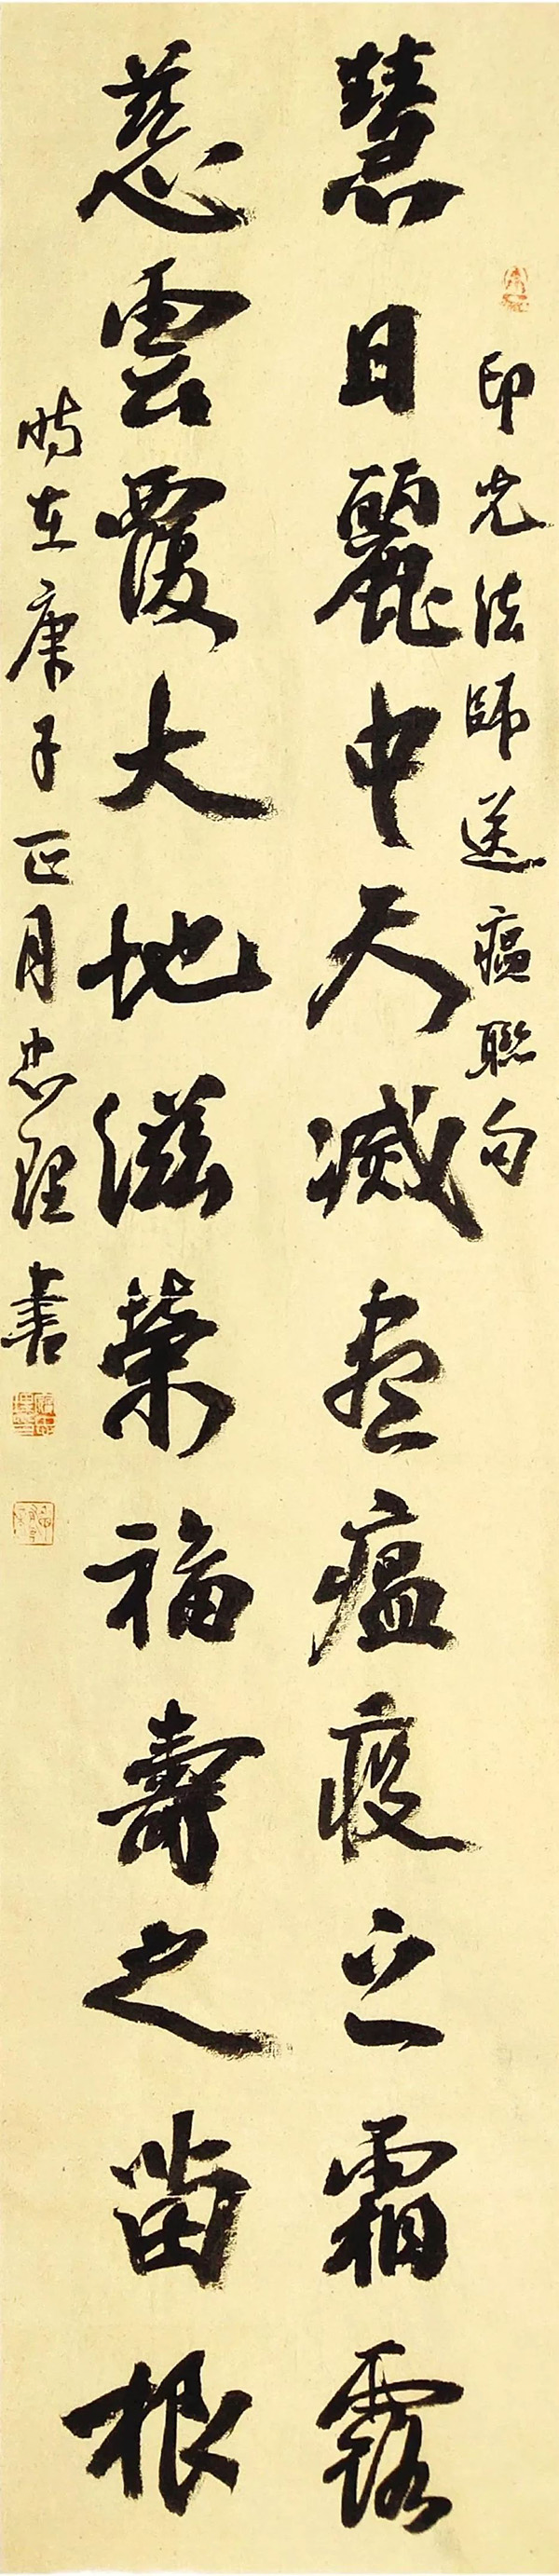 印光法師送瘟聯句
慧日麗中天滅盡瘟疫之霜露
慈雲覆大地滋榮福壽之苗根
時在庚子正月忠理書